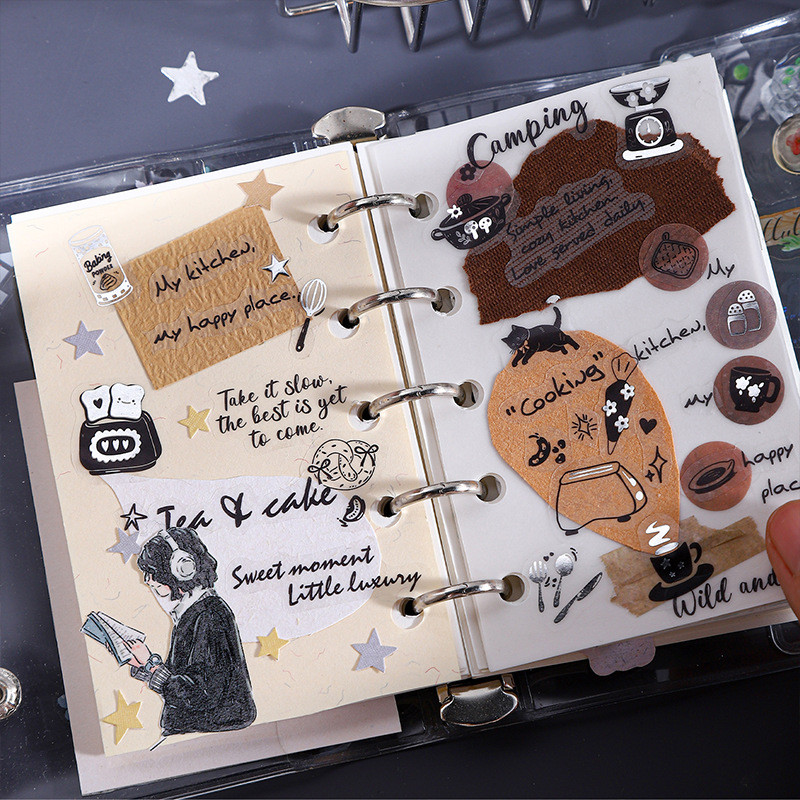 Baking
POWDER
My kitchen,
My happy place.
Take it slow,
the best is yet
to come.
Tea & cake
Sweet moment
Little luxury
Camping
Simple living,
cozy kitchen
Love served daily
My
kitchen,
my
happy
plac
"Cooking"
Wild and